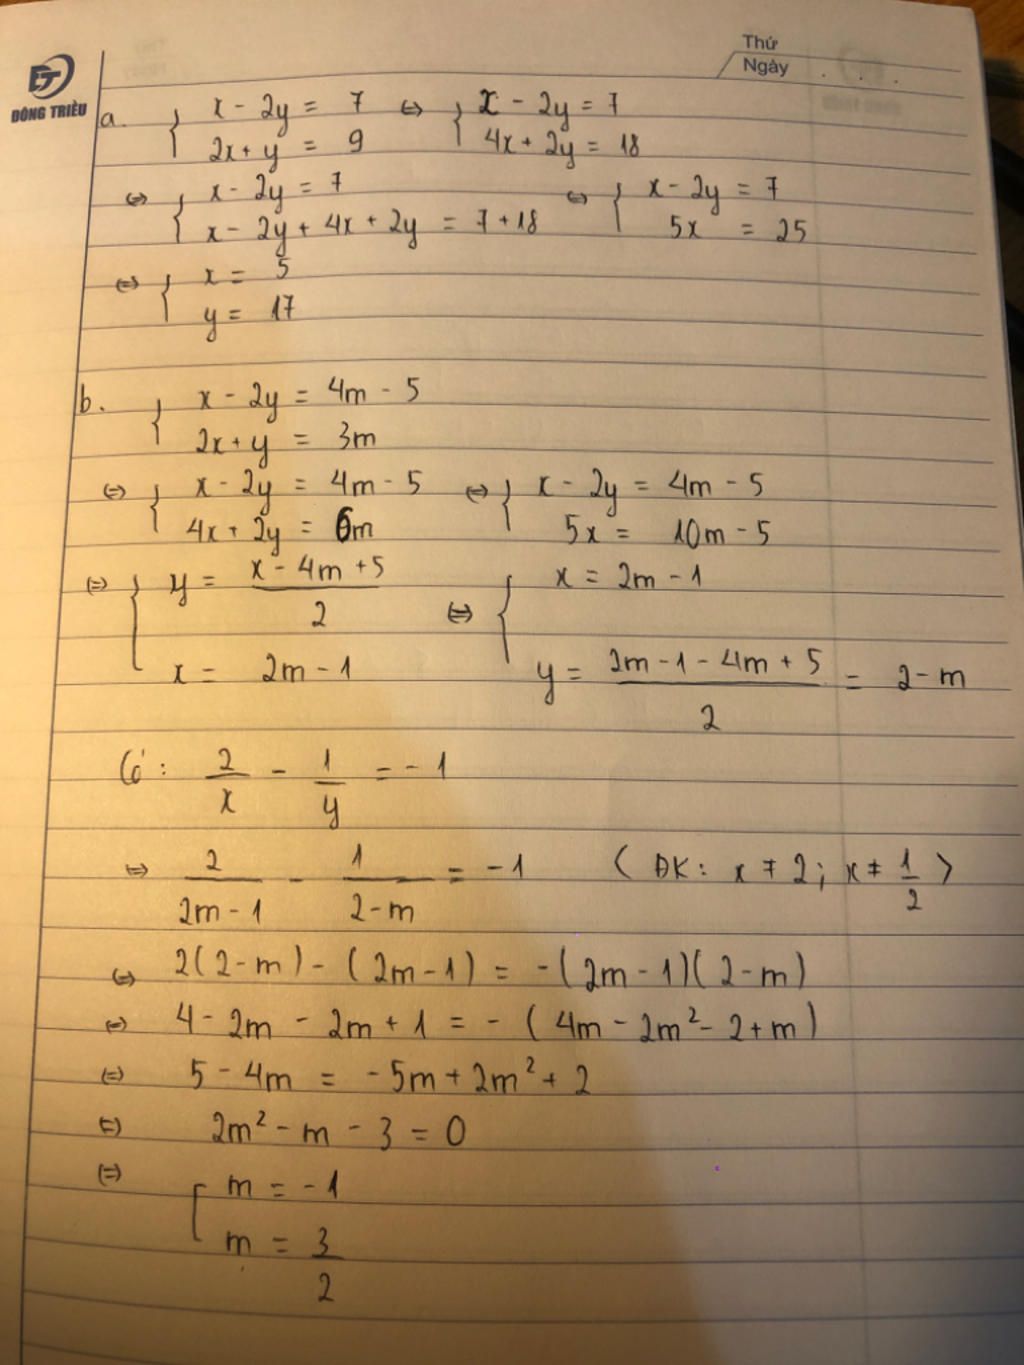 Thứ
Ngày . . .
ĐÔNG TRIỀU
a. { x - 2y = 7 ⇔ { x - 2y = 7
2x + y = 9 4x + 2y = 18
⇔ { x - 2y = 7 ⇔ { x - 2y = 7
x - 2y + 4x + 2y = 7 + 18 5x = 25
⇔ { x = 5
y = 17
b. { x - 2y = 4m - 5
2x + y = 3m
⇔ { x - 2y = 4m - 5 ⇔ { x - 2y = 4m - 5
4x + 2y = 6m 5x = 10m - 5
⇔ { y = (x - 4m + 5)/2 ⇔ { x = 2m - 1
x = 2m - 1 y = (2m - 1 - 4m + 5)/2 = 2 - m
Có : 2/x - 1/y = - 1
⇔ 2/(2m - 1) - 1/(2 - m) = - 1 ( ĐK : x ≠ 2 ; x ≠ 1/2 )
⇔ 2(2 - m) - (2m - 1) = - (2m - 1)(2 - m)
⇔ 4 - 2m - 2m + 1 = - (4m - 2m² - 2 + m)
⇔ 5 - 4m = - 5m + 2m² + 2
⇔ 2m² - m - 3 = 0
⇔ [ m = - 1
m = 3/2